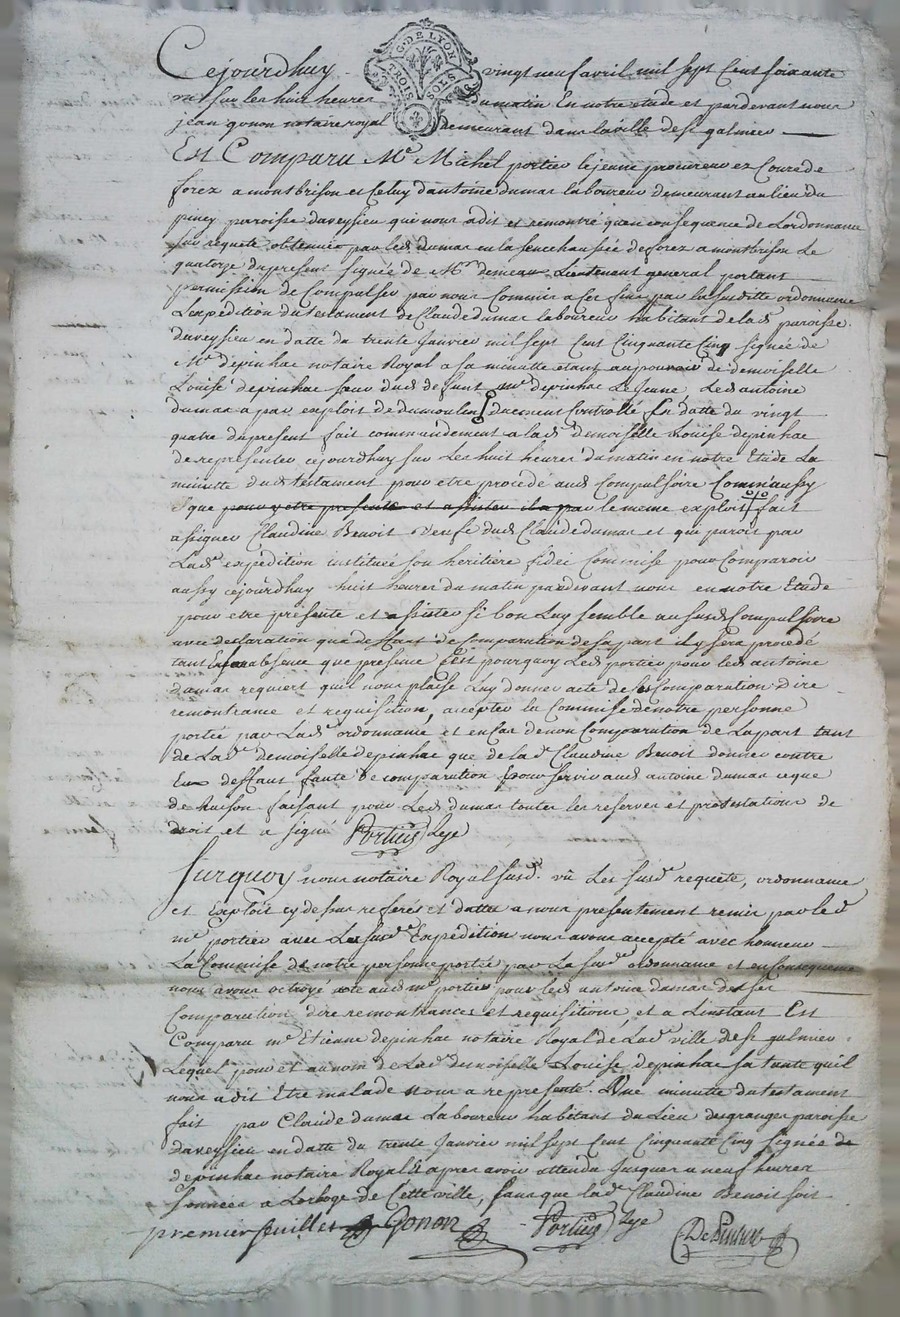 G. DE LYON
TROIS SOLS
Cejourdhuy vingt neuf avril mil sept Cent soixante
sur les huit heures du matin En notre etude et pardevant nous
jean gonon notaire royal demeurant dans la ville de st galmier
Est Comparu Me Michel portier le jeune procureur ez Cours de
forez a montbrison et Celuy dantoine dumas laboureur demeurant au lieu du
piney paroisse daveysieu qui nous a dit et remontré quen consequence de Lordonnance
sur requete obtenue par led dumas en la senechaussée de forez a montbrison Le
quatorze du present signée de Mr demeaux Lieutenant general portant
permission de Compulser par nous Commis a ces fins par la susditte ordonnance
Lexpedition du testament de Claude dumas laboureur habitant de lad paroisse
daveysieu en datte du trente Janvier mil sept Cent Cinquante Cinq signée de
Me depinhac notaire Royal a sa minutte etant au pouvoir de demoiselle
Louise depinhac sœur dud defunt me depinhac Le Jeune, Led antoine
dumas a par exploit de dumoulin duement Controllé En datte du vingt
quatre du present fait commandement a lad demoiselle Louise depinhac
de representer cejourdhuy sur Les huit heures du matin en notre Etude La
minutte dud testament pour etre procédé aud Compulsoire Comm'aussy
que pour y etre presente et assister il a par le meme exploit fait
assigner Claudine Benoit veuve dud Claude dumas et qui paroit par
Lad expédition instituée son heritiere fidei Commise pour Comparoir
aussy cejourdhuy huit heures du matin pardevant nous en notre Etude
pour etre présente et assister si bon Luy semble au susd Compulsoire
avec declaration que deffaut de Comparution de sa part il y sera procédé
tant En son absence que presence C'est pourquoy Led portier pour led antoine
dumas requiert quil nous plaise Luy donner acte de ses Comparution dire
remontrance et requisition, accepter la Commise de notre personne
portée par Lad ordonnance et en Cas de non Comparution de La part tant
de La d. demoiselle depinhac que de la d. Claudine Benoit donner contre
Eux deffaut faute de comparution pour servir aud antoine dumas ce que
de Raison faisant pour Led dumas toutes les reserves et protestations de
droit et a signé Portier Leje
Surquoy nous notaire Royal susd. vû Les susd. requete, ordonnance
et Exploit cy dessus referés et dattés a nous presentement remis par le d.
me portier avec La susd. Expédition nous avons accepté avec honneur
La Commise de notre personne portée par La susd. ordonnance et en Consequence
nous avons octroyé acte aud me portier pour led antoine dumas de ses
Comparution dire remontrances et requisitions, et a Linstant Est
Comparu me Etienne depinhac notaire Royal de La d. ville de st galmier
Lequel pour et au nom de La d. demoiselle Louise depinhac sa tante quil
nous a dit Etre malade Nous a representé. Une minutte du testament
fait par Claude dumas Laboureur habitant du Lieu des granges paroisse
daveysieu en datte du trente Janvier mil sept Cent Cinquante Cinq signée de
depinhac notaire Royal Et apres avoir attendu Jusques a neuf heures
sonnées a Lorloge de Cette ville, sans que lad. Claudine Benoit soit
premier feuillet Gonon Portier Leje Depinhac